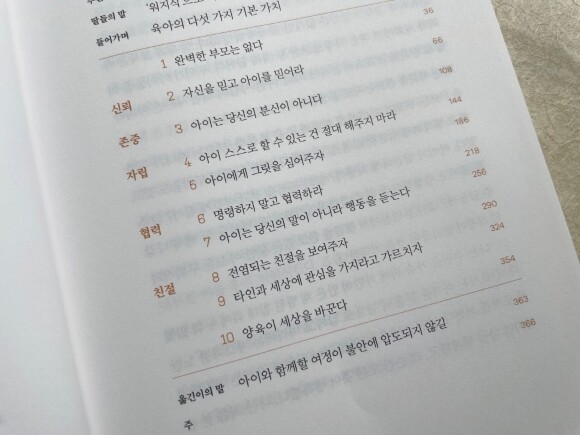 딸들의 말
들어가며 육아의 다섯 가지 기본 가치
1 완벽한 부모는 없다 36
신뢰 2 자신을 믿고 아이를 믿어라 66
존중 3 아이는 당신의 분신이 아니다 108
자립 4 아이 스스로 할 수 있는 건 절대 해주지 마라 144
5 아이에게 그릿을 심어주자 186
협력 6 명령하지 말고 협력하라 218
7 아이는 당신의 말이 아니라 행동을 듣는다 256
친절 8 전염되는 친절을 보여주자 290
9 타인과 세상에 관심을 가지라고 가르치자 324
10 양육이 세상을 바꾼다 354
옮긴이의 말 아이와 함께할 여정이 불안에 압도되지 않길 363
주 366